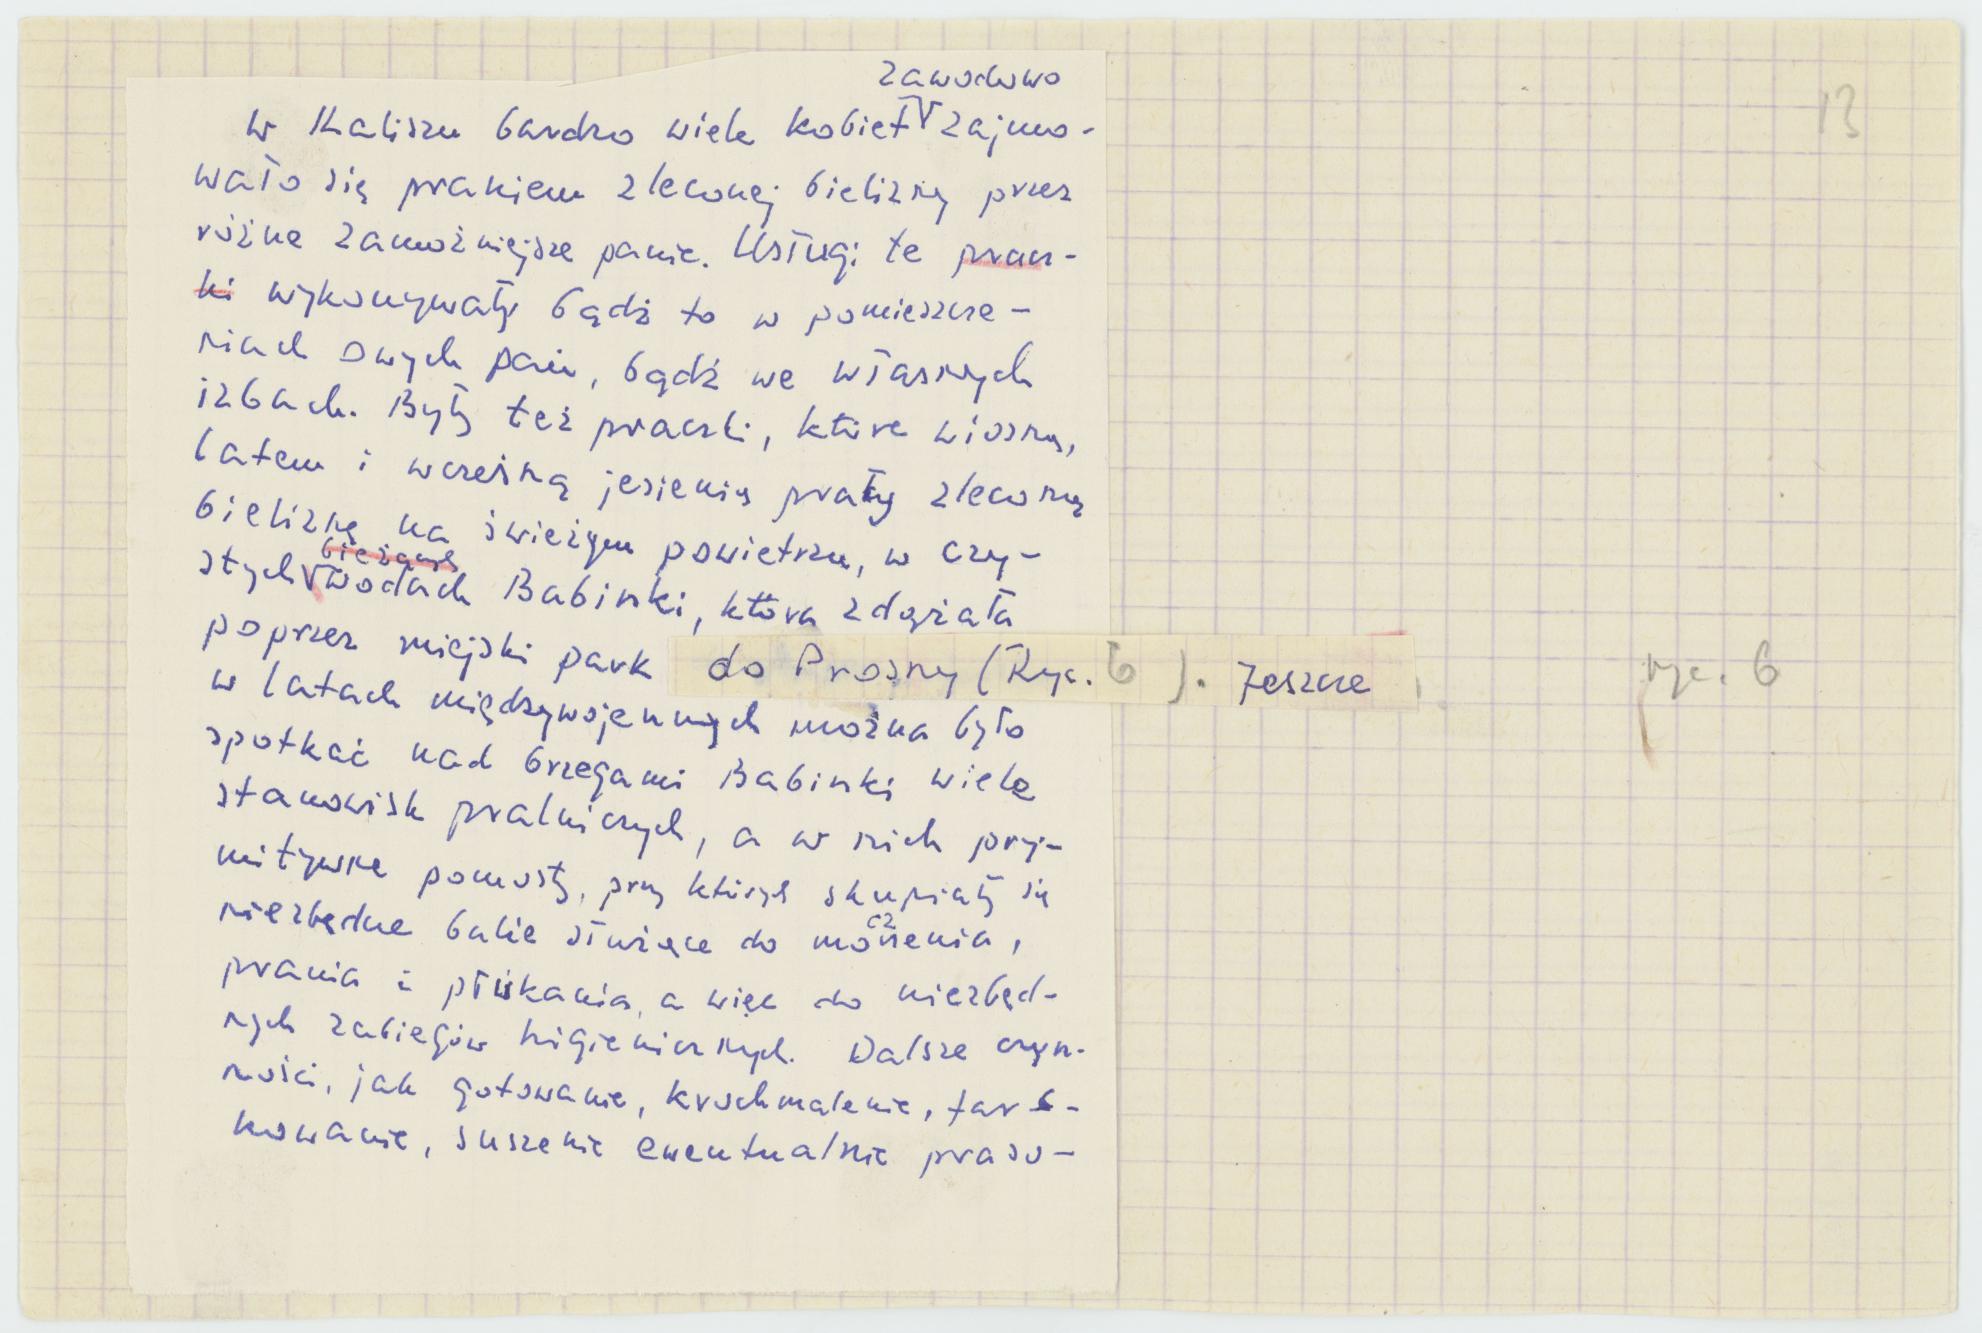 13
zawodowo
W Kaliszu bardzo wiele kobiet zajmo-
wało się praniem zleconej bielizny przez
różne zamożniejsze panie. Usługi te pracz-
ki wykonywały bądź to w pomieszcze-
niach owych pań, bądź we własnych
izbach. Były też praczki, które wiosną,
latem i wczesną jesienią prały zleconą
bieliznę na świeżym powietrzu, w czy-
bieżących
stych wodach Babinki, która zdążała
poprzez miejski park do Prosny (Ryc. 6). Jeszcze
ryc. 6
w latach międzywojennych można było
spotkać nad brzegami Babinki wiele
stanowisk pralniczych, a w nich pry-
mitywne pomosty, przy których skupiały się
niezbędne balie służące do moczenia,
prania i płukania, a więc do niezbęd-
nych zabiegów higienicznych. Dalsze czyn-
ności, jak gotowanie, krochmalenie, farb-
kowanie, suszenie ewentualnie praso-